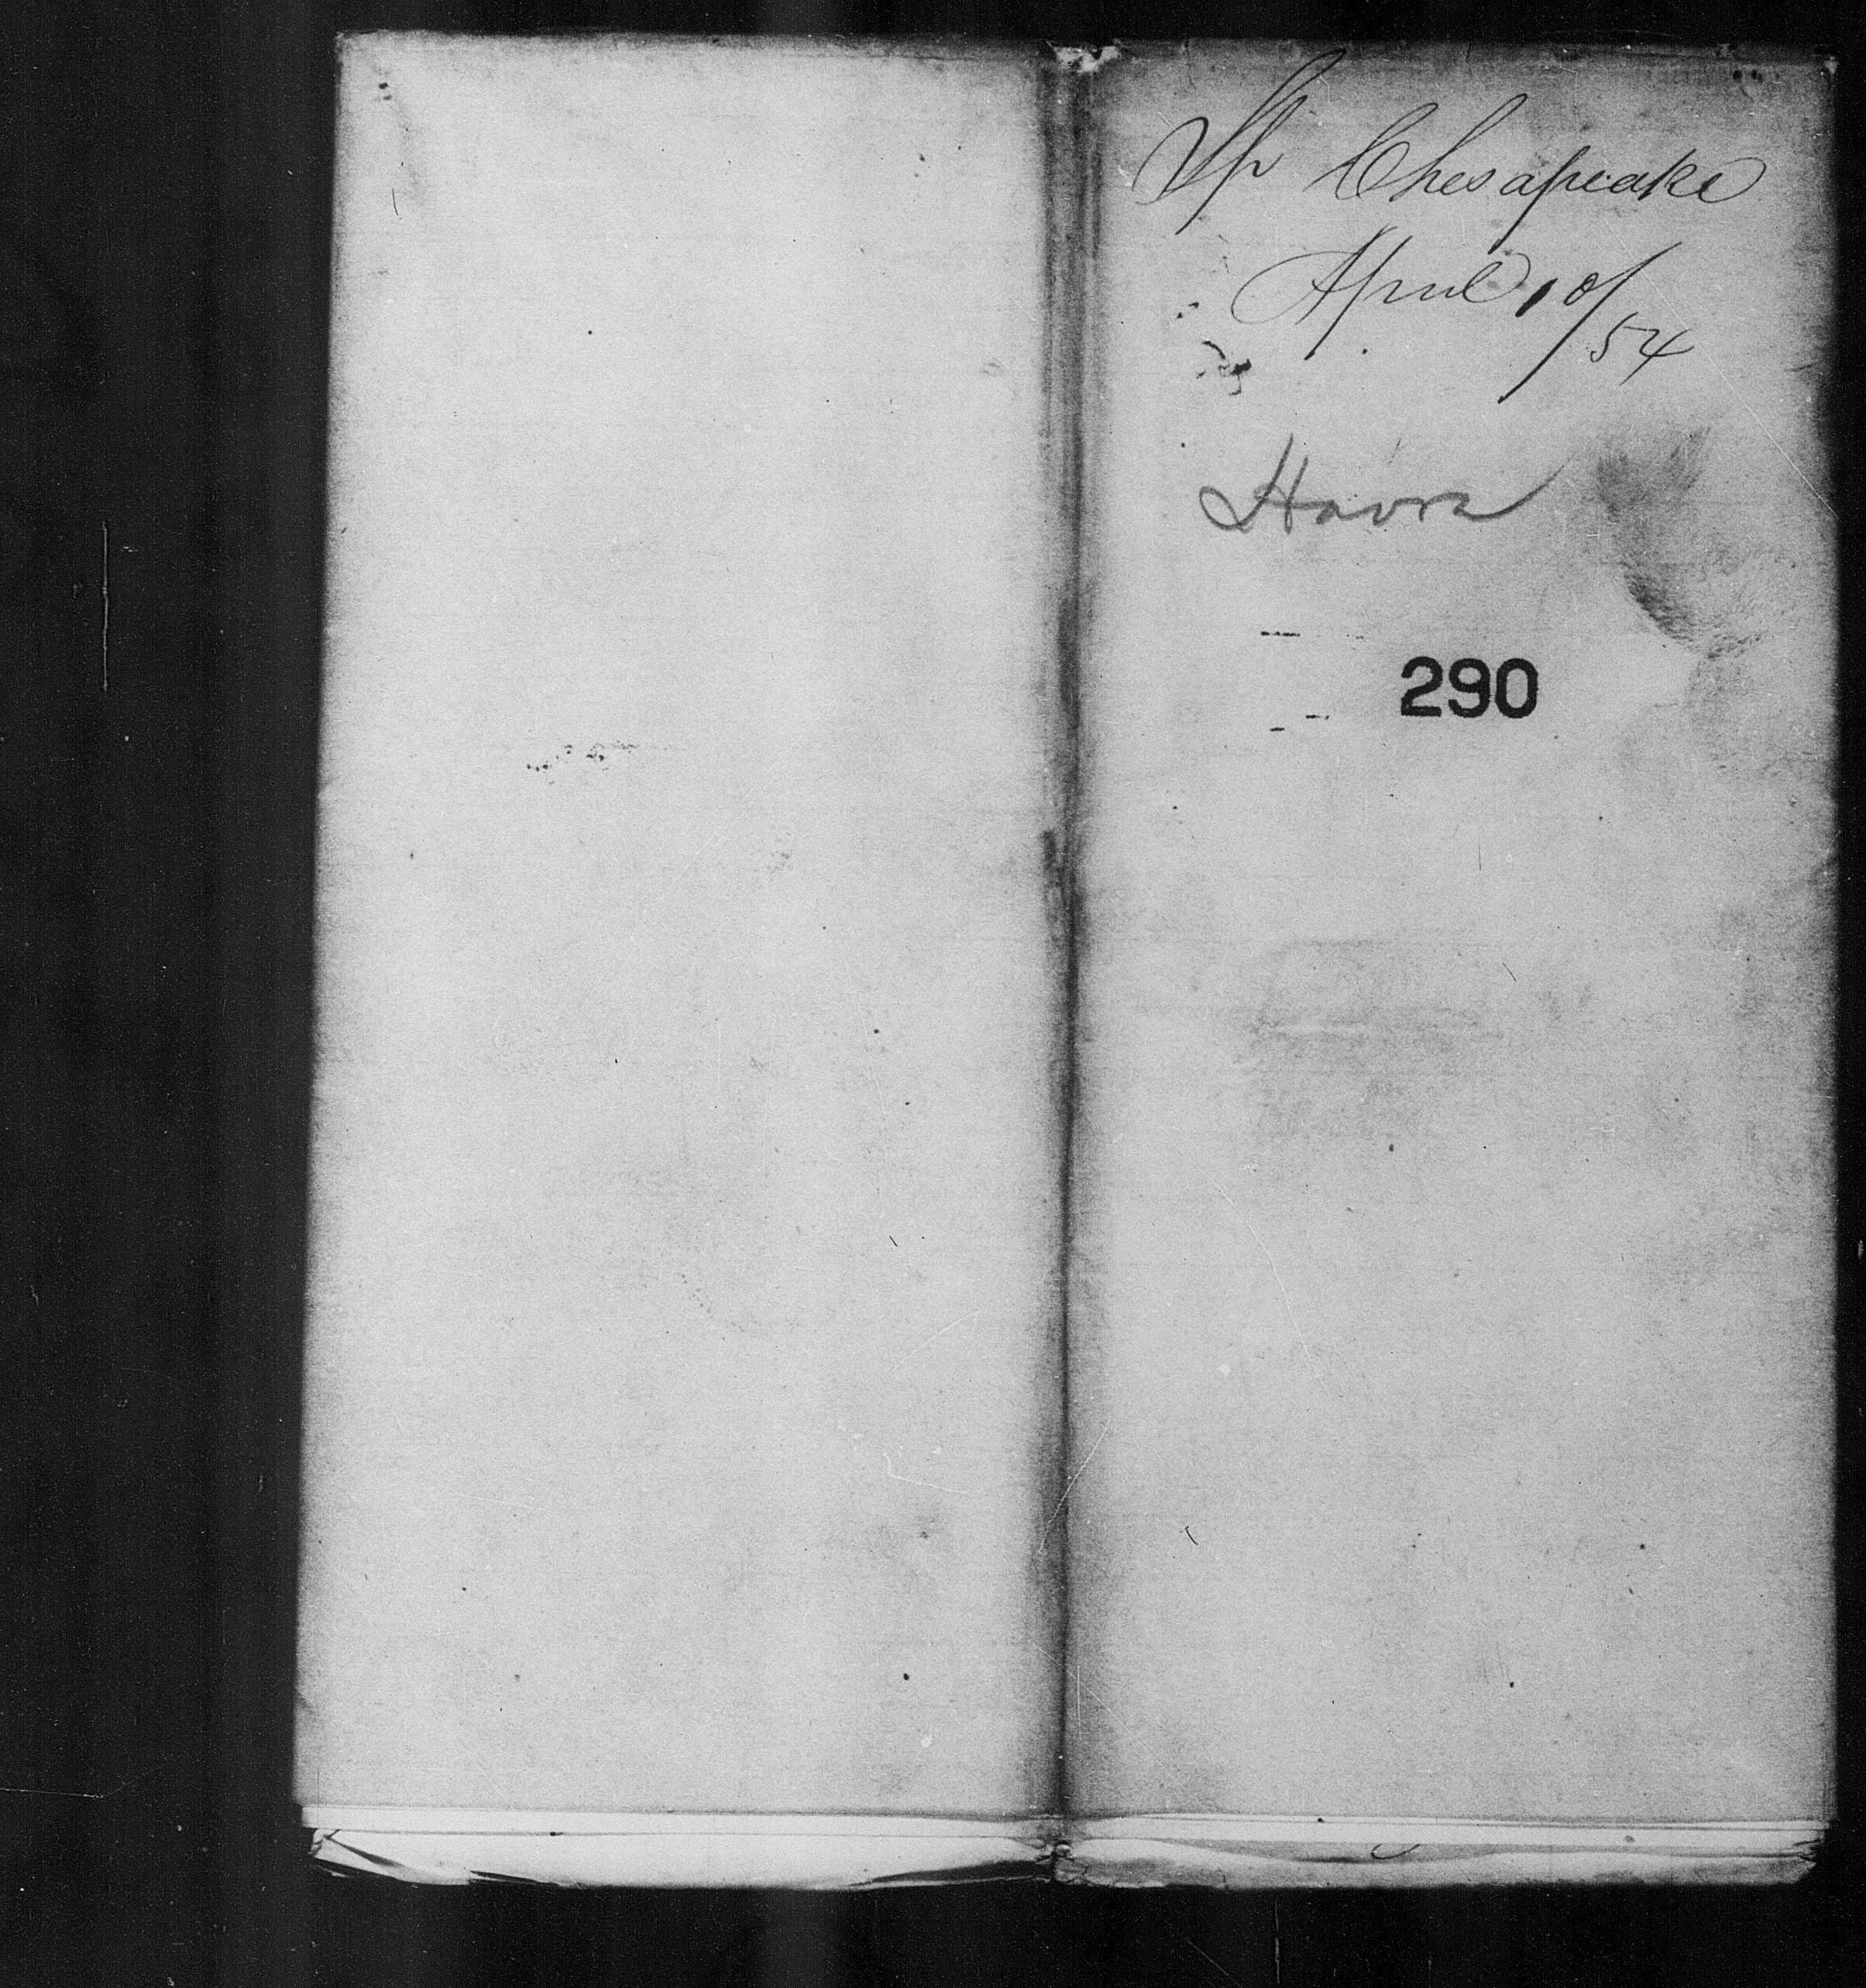 Sh Chesapeake
April 10/54
Havre
290